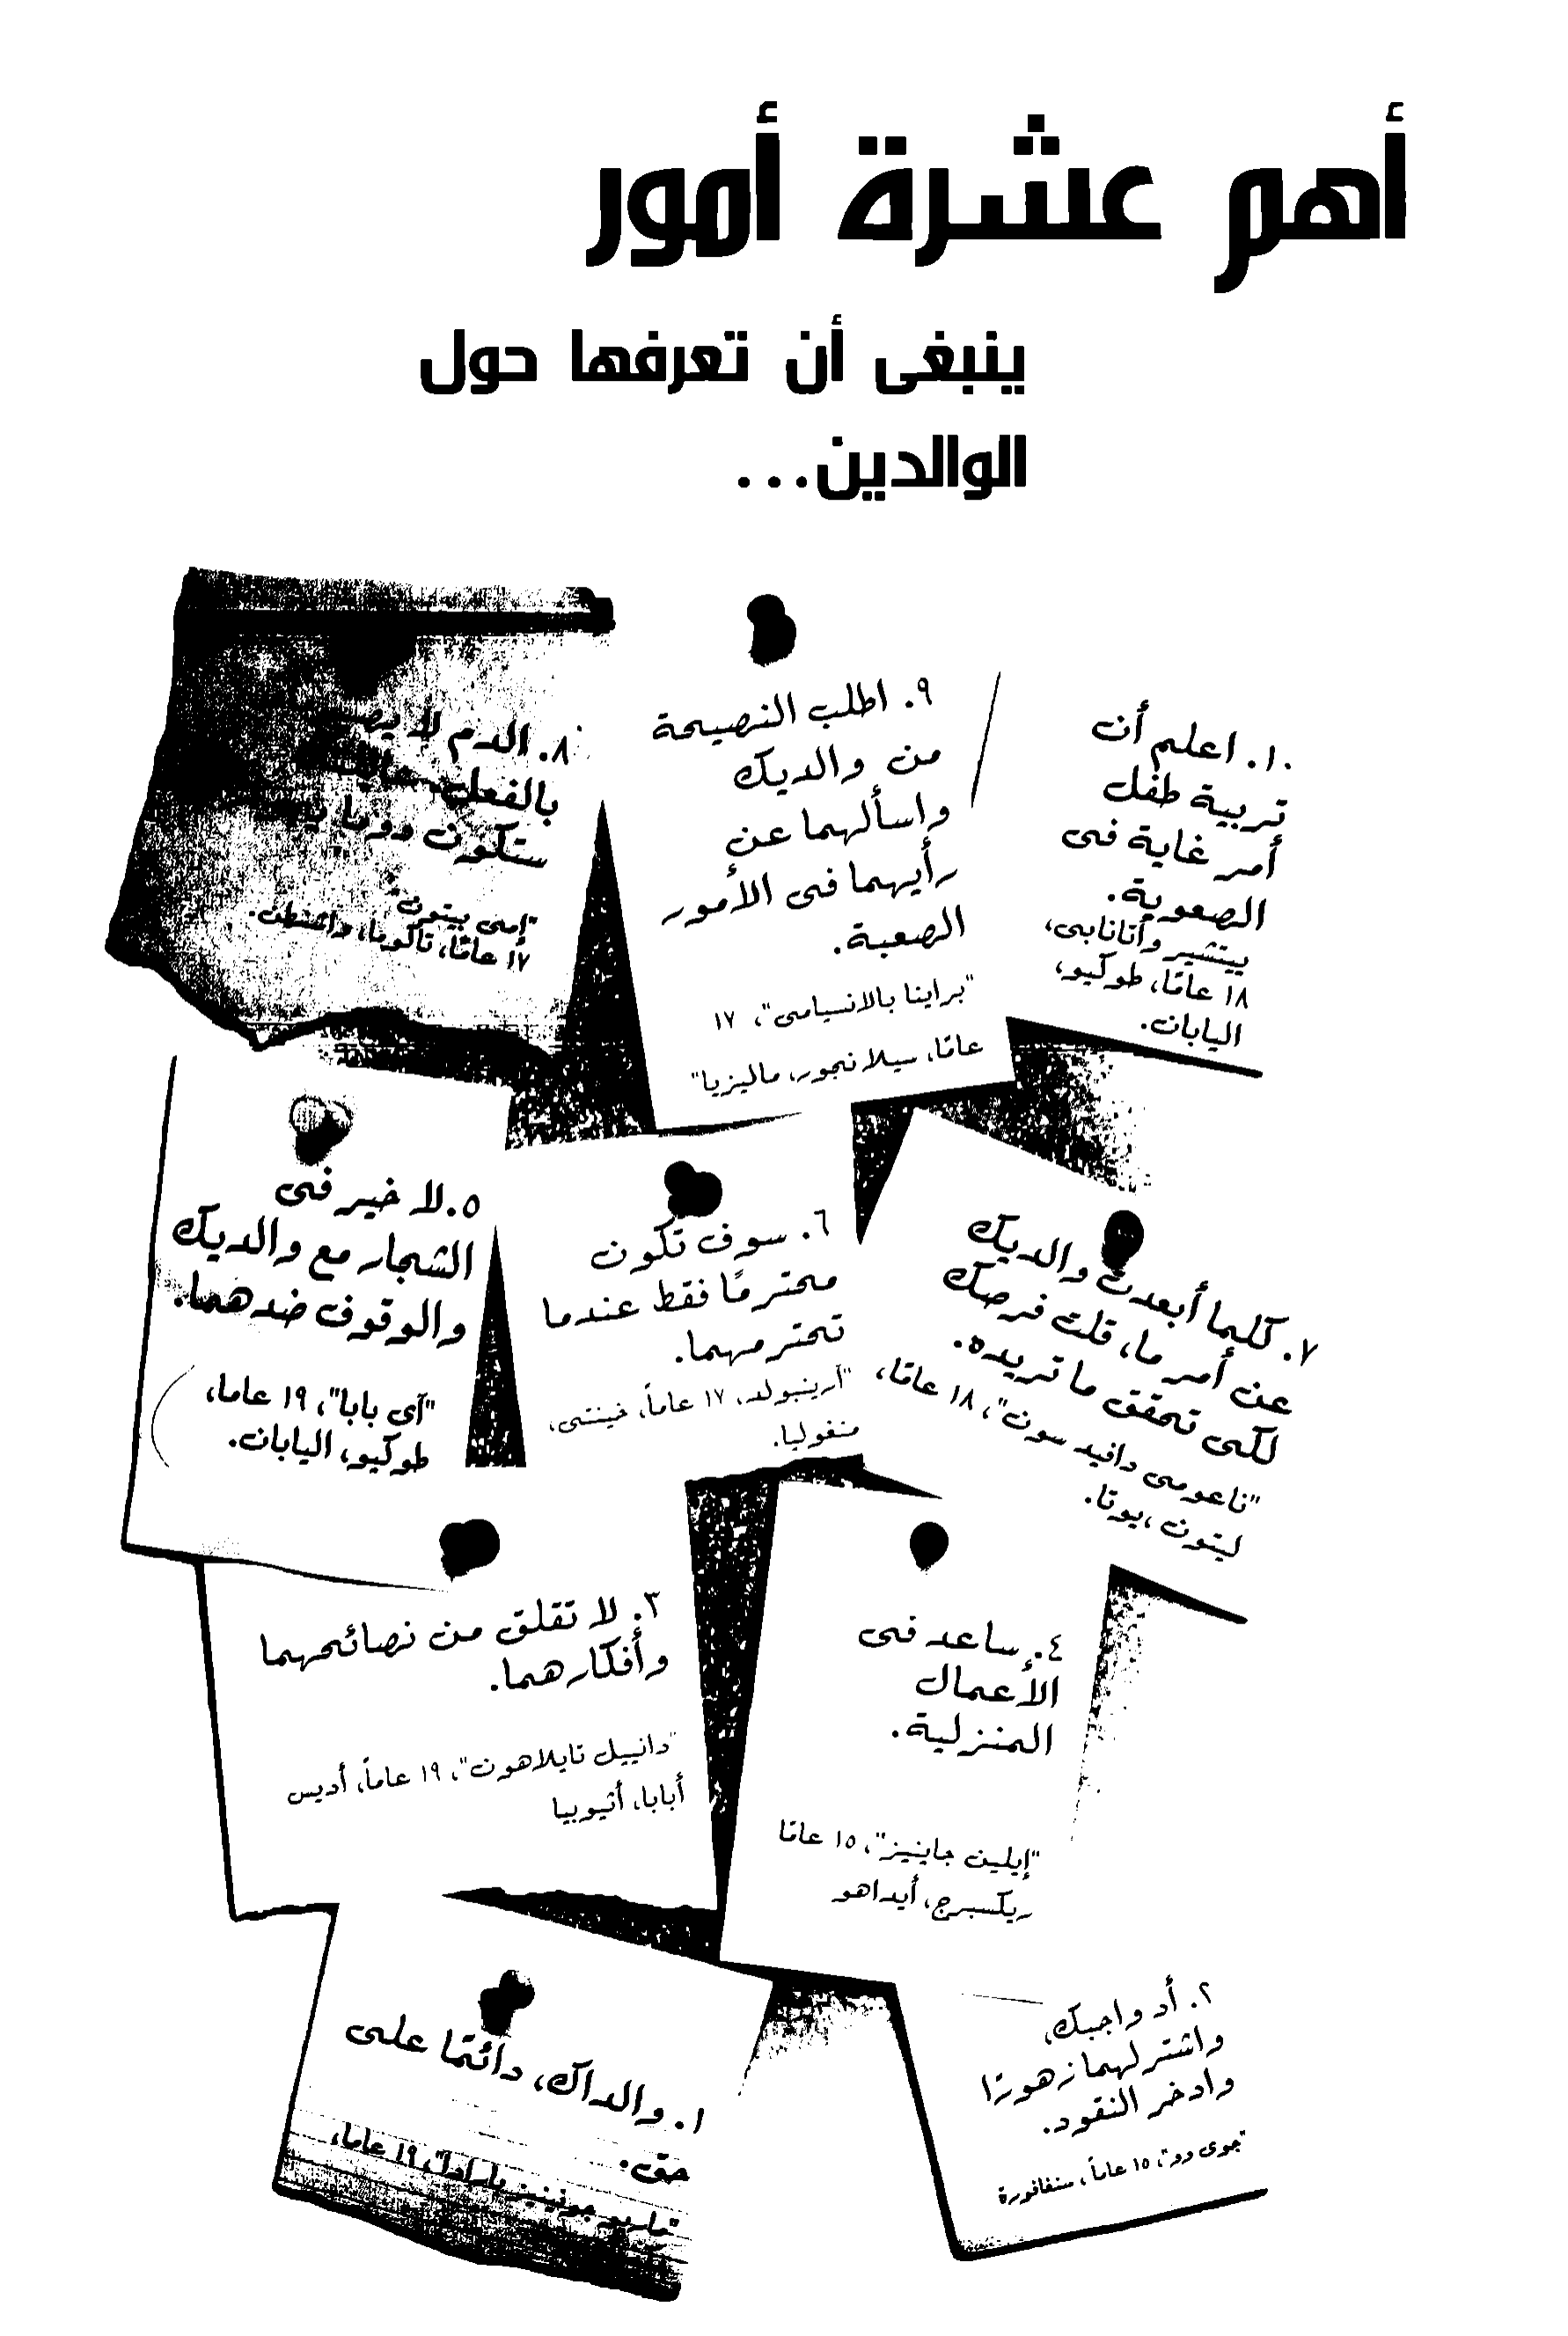 أهم عشرة أمور
ينبغى أن تعرفها حول
الوالدين...
١٠. اعلم أن
تربية طفل
أمر غاية فى
الصعوبة.
ييتشير وأتانابى،
١٨ عامًا، طوكيو،
اليابان.
٩. اطلب النصيحة
من والديك
واسألهما عن
رأيهما فى الأمور
الصعبة.
"براينا بالانسيامى"، ١٧
عامًا، سيلانجور، ماليزيا"
٨. الدم لا
بالفعل
ستكون دوما
"إمى بيتون"
١٧ عامًا، تاكوما، واشنطن.
٧. كلما أبعدت والديك
عن أمر ما، قلت فرصك
لكى تحقق ما تريده.
"ناعومى دافيد سون"، ١٨ عامًا،
ليتون ،يوتا.
٦. سوف تكون
محترمًا فقط عندما
تحترمهما.
"آرينبولد، ١٧ عاماً، خينتى،
منغوليا.
٥. لا خير فى
الشجار مع والديك
والوقوف ضدهما.
"آى بابا"، ١٩ عاما،
طوكيو، اليابان.
٤. ساعد فى
الأعمال
المنزلية.
"إيلين جاينيز"، ١٥ عامًا
ريكسبرج، أيداهو
٣. لا تقلق من نصائحهما
وأفكارهما.
"دانييل تايلاهون"، ١٩ عاماً، أديس
أبابا، أثيوبيا
٢. أد واجبك،
واشتر لهما زهورًا
وادخر النقود.
"جوى دو"، ١٥ عاماً، سنغافورة
١. والداك، دائمًا على
حق.
"ماريو جونينيز بارادا"، ١٩ عاما،